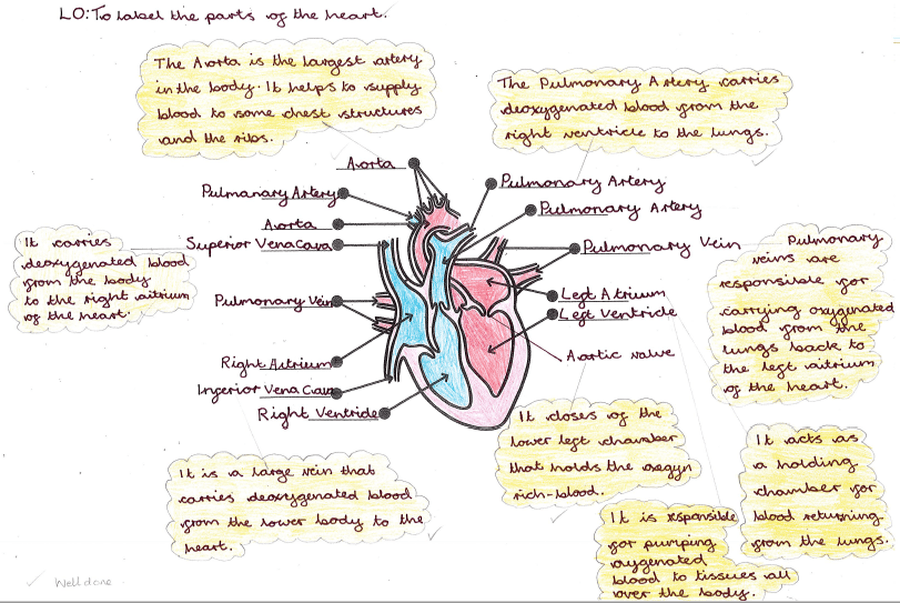 LO: To label the parts of the heart.
The Aorta is the largest artery
in the body. It helps to supply
blood to some chest structures
and the ribs.
The Pulmonary Artery carries
deoxygenated blood from the
right ventricle to the lungs.
Aorta
Pulmanary Artery
Aorta
Superior Vena Cava
Pulmonary Vein
Right Astrium
Inferior Vena Cava
Right Ventricle
Pulmonary Artery
Pulmonary Artery
Pulmonary Vein
Left Atrium
Left Ventricle
Aortic valve
It carries
deoxygenated blood
from the body
to the right aitrium
of the heart.
Pulmonary
veins are
responsible for
carrying oxygenated
blood from the
lungs back to
the left aitrium
of the heart.
It is a large vein that
carries deoxygenated blood
from the lower body to the
heart.
It closes of the
lower left chamber
that holds the oxegyn
rich-blood.
It is responsible
for pumping
oxygenated
blood to tissues all
over the body.
It acts as
a holding
chamber for
blood returning
from the lungs.
Well done